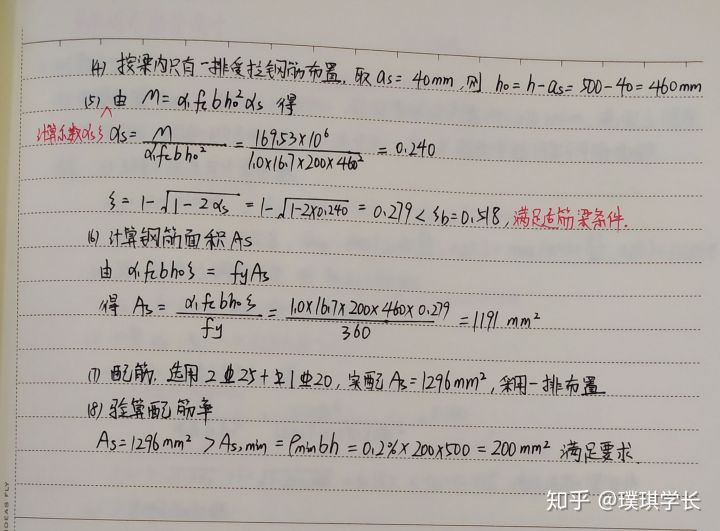 (4) 按梁内只有一排受拉钢筋布置，取 as = 40mm，则 h₀ = h-as = 500-40 = 460mm
(5) 由 M = α₁fcbh₀²αs 得
计算系数αs ξ
αs = M/α₁fcbh₀² = 169.53×10⁶/1.0×16.7×200×460² = 0.240
ξ = 1-√1-2αs = 1-√1-2×0.240 = 0.279 < ξb = 0.518, 满足适筋梁条件.
(6) 计算钢筋面积 As
由 α₁fcbh₀ξ = fyAs
得 As = α₁fcbh₀ξ/fy = 1.0×16.7×200×460×0.279/360 = 1191 mm²
(7) 配筋, 选用 2⏀25+1⏀20, 实配 As = 1296mm², 采用一排布置
(8) 验算配筋率
As = 1296 mm² > As,min = ρminbh = 0.2%×200×500 = 200 mm² 满足要求.
IDEAS FLY
知乎 @璞琪学长